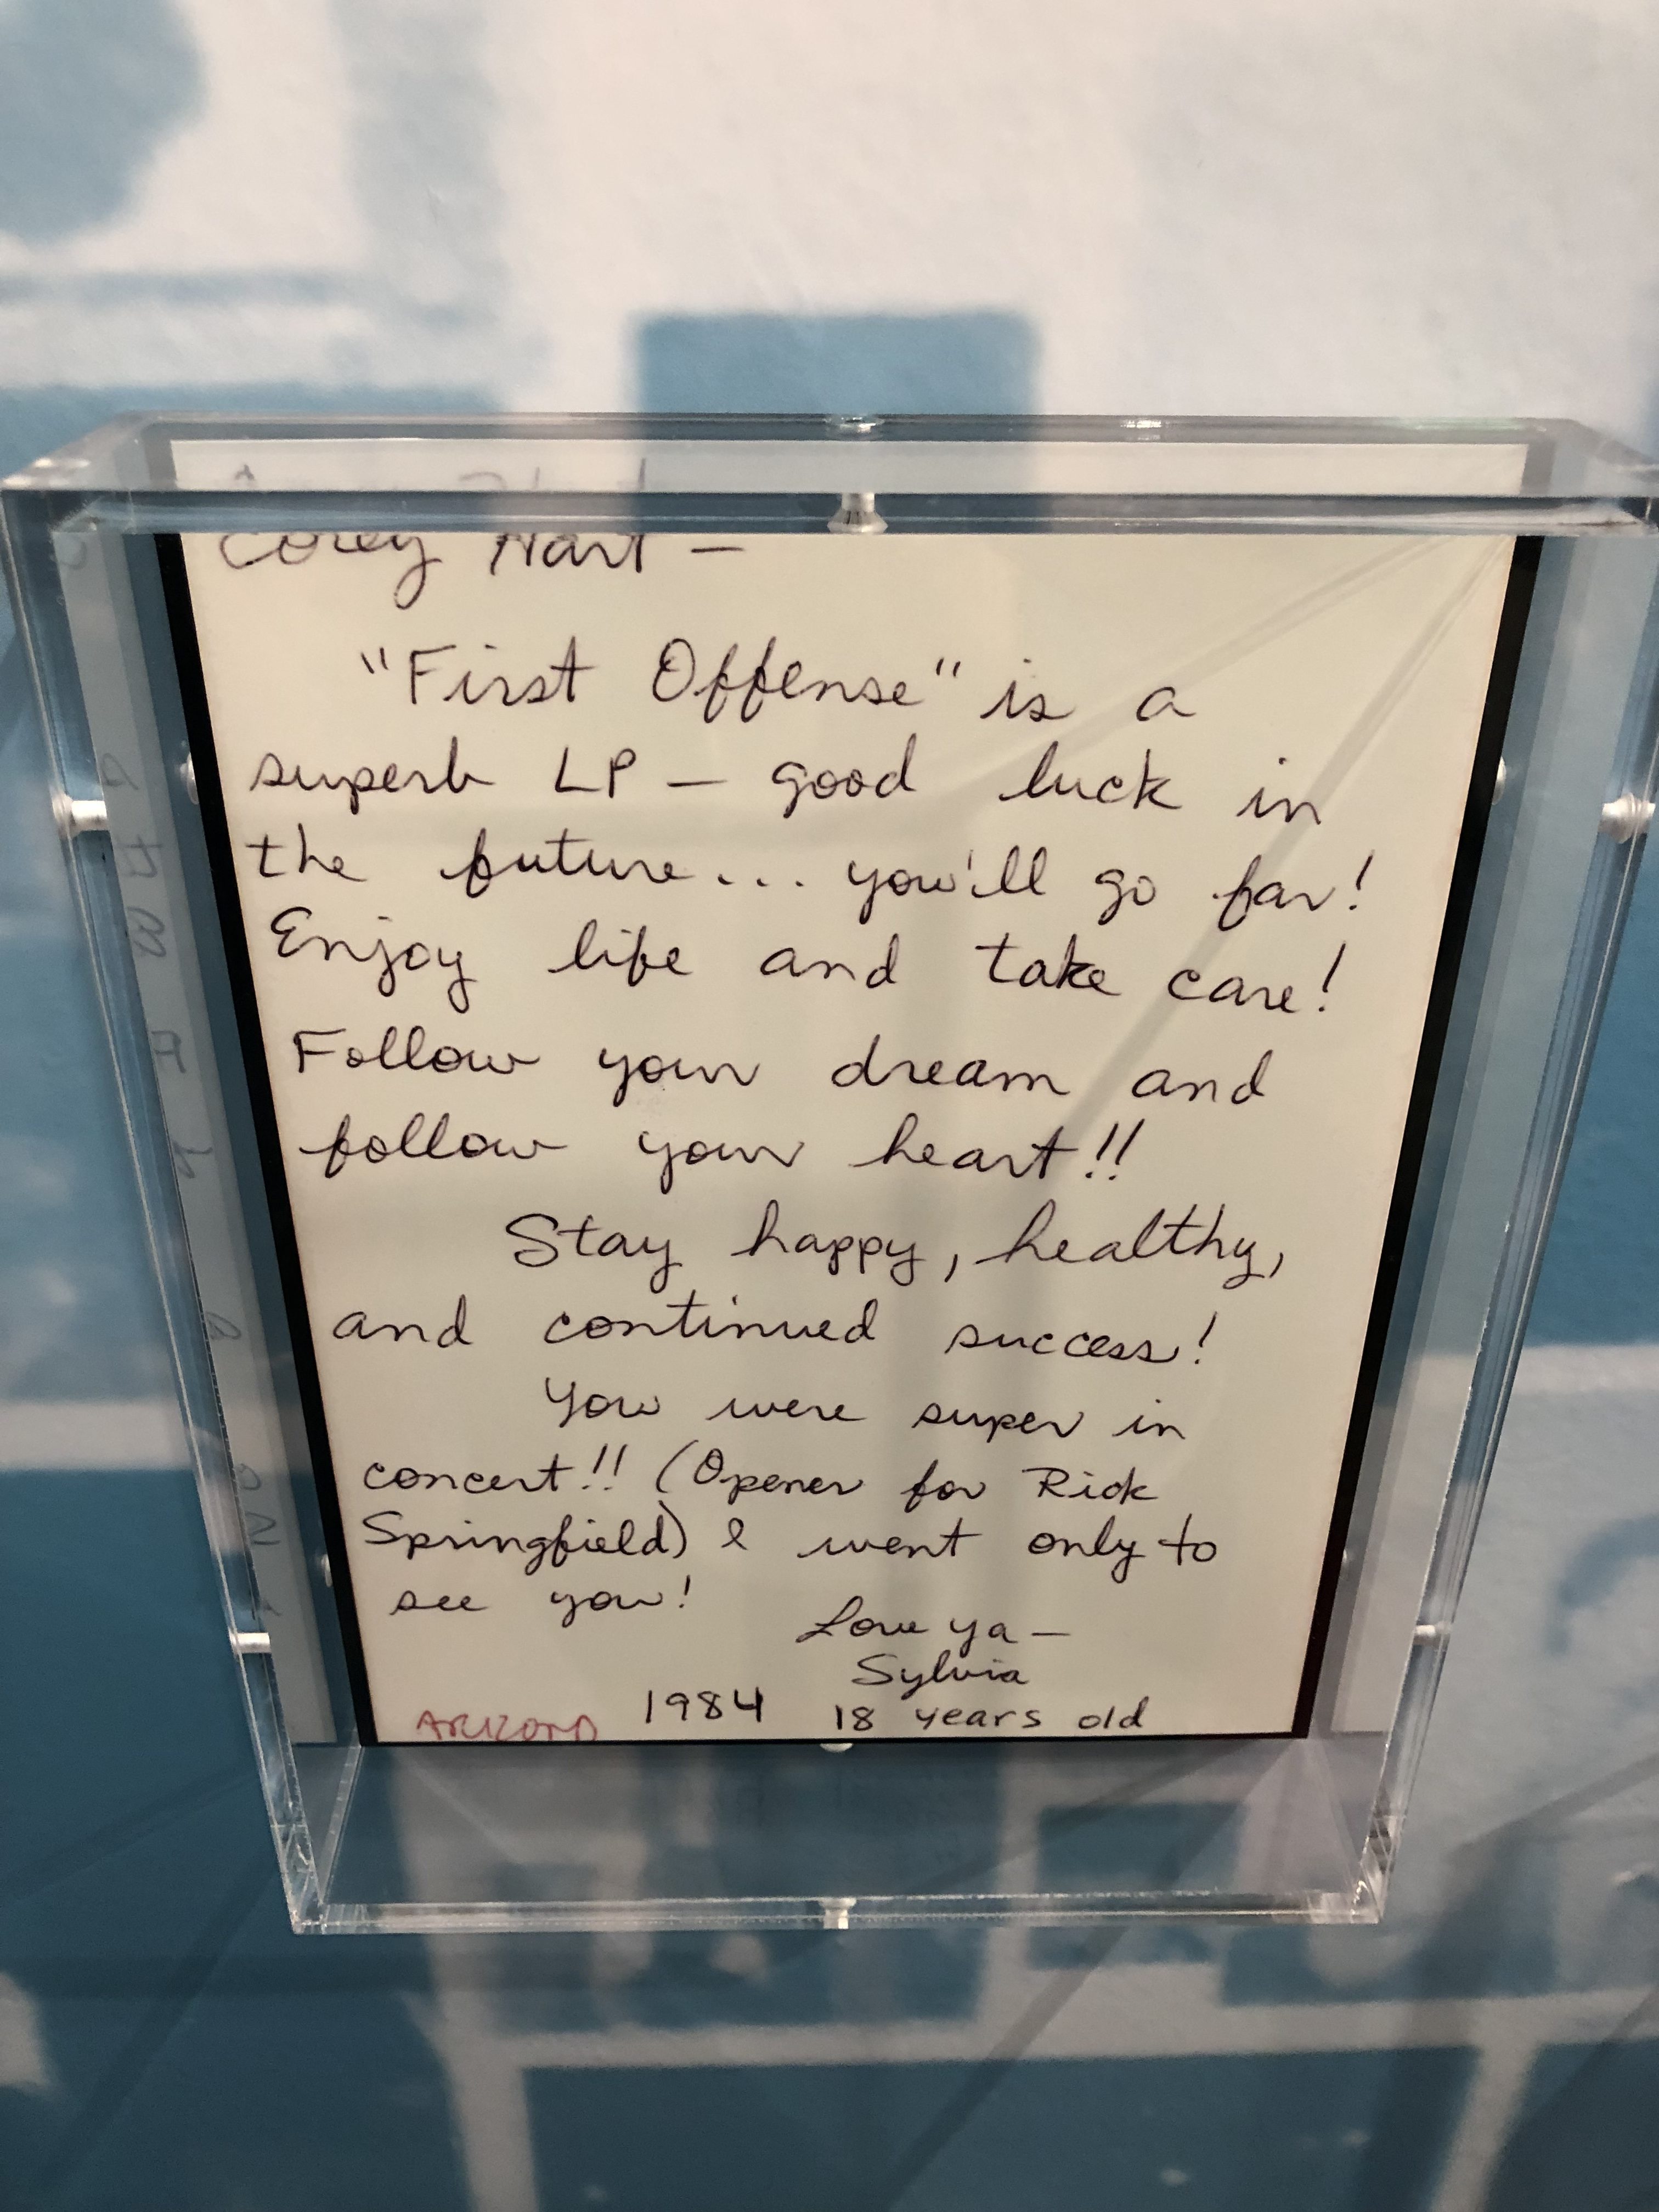 Corey Hart —
"First Offense" is a
superb LP — good luck in
the future... you'll go far!
Enjoy life and take care!
Follow your dream and
follow your heart!!
Stay happy, healthy,
and continued success!
You were super in
concert!! (Opener for Rick
Springfield) I went only to
see you!
Love ya —
Sylvia
ARIZONA 1984 18 years old